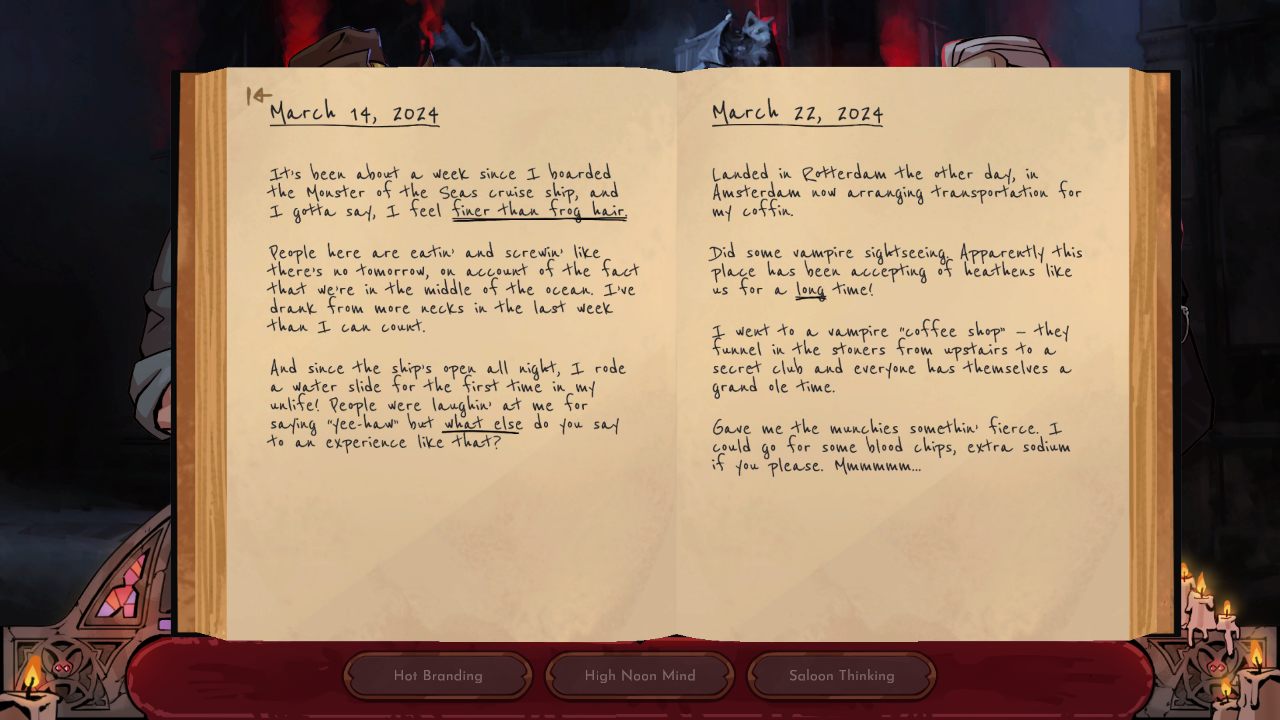 March 14, 2024
It's been about a week since I boarded
the Monster of the Seas cruise ship, and
I gotta say, I feel finer than frog hair.
People here are eatin' and screwin' like
there's no tomorrow, on account of the fact
that we're in the middle of the ocean. I've
drank from more necks in the last week
than I can count.
And since the ship's open all night, I rode
a water slide for the first time in my
unlife! People were laughin' at me for
saying "yee-haw" but what else do you say
to an experience like that?
March 22, 2024
Landed in Rotterdam the other day, in
Amsterdam now arranging transportation for
my coffin.
Did some vampire sightseeing. Apparently this
place has been accepting of heathens like
us for a long time!
I went to a vampire "coffee shop" – they
funnel in the stoners from upstairs to a
secret club and everyone has themselves a
grand ole time.
Gave me the munchies somethin' fierce. I
could go for some blood chips, extra sodium
if you please. Mmmmmm...
Hot Branding
High Noon Mind
Saloon Thinking